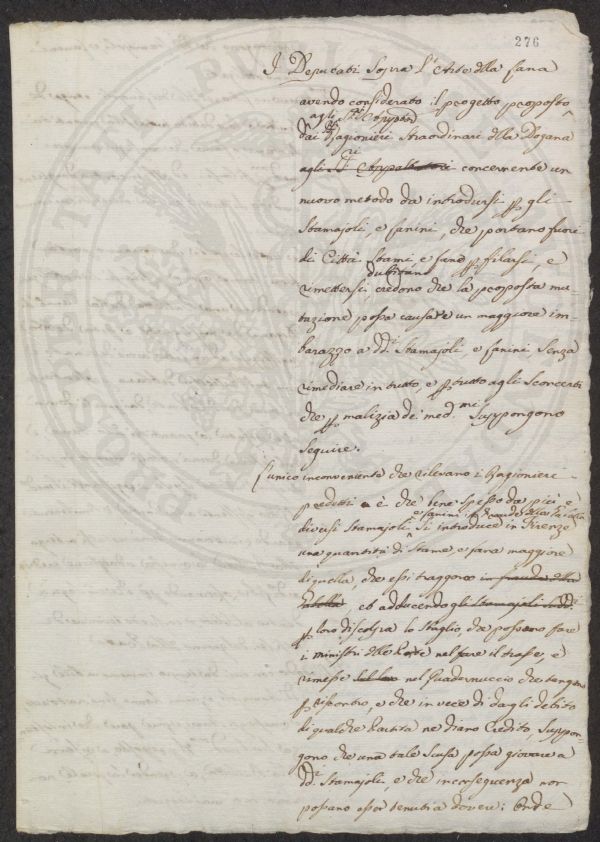 276
I Deputati Sopra l'Arte della Lana
avendo considerato il progetto proposto
agli SS.ri Appal.ri
dai Ragionieri Straordinari della Dogana
agli SS.ri Appaltatori concernente un
nuovo metodo da introdursi p gli
Stamajoli, e Lanini, che portano fuori
di Città Stami, e Lane p filarsi, e
dubitano
rimettersi credono che la proposta mu
tazione possa causare un maggiore im
barazzo a dd.i Stamajoli, e Lanini, Senza
rimediare in tutto, e p tutto agli Sconcerti
che p malizia de med.mi Suppongono
Seguire.
L'unico inconveniente che rilevano i Ragionieri
predetti è che bene spesso da più e
e Lanini in fraude della
diversi Stamajoli Si introduce in Firenze
una quantità di Stame, e Lana maggiore
di quella, che essi traggono in fraude della
Gabella, ed adducendo gli Stamajoli sudd.i
p loro discolpa lo Sbaglio, che possano fare
i Ministri delle Porte nel fare il trasse, e
rimesse nel Quadernuccio che tengono
p riscontro, e che in vece di dargli debito
di qualche Partita ne diano Credito, Suppon
gono che una tale Scusa possa giovare a
dd.i Stamajoli, e che in conseguenza non
possano esser tenuti a dovere: Onde